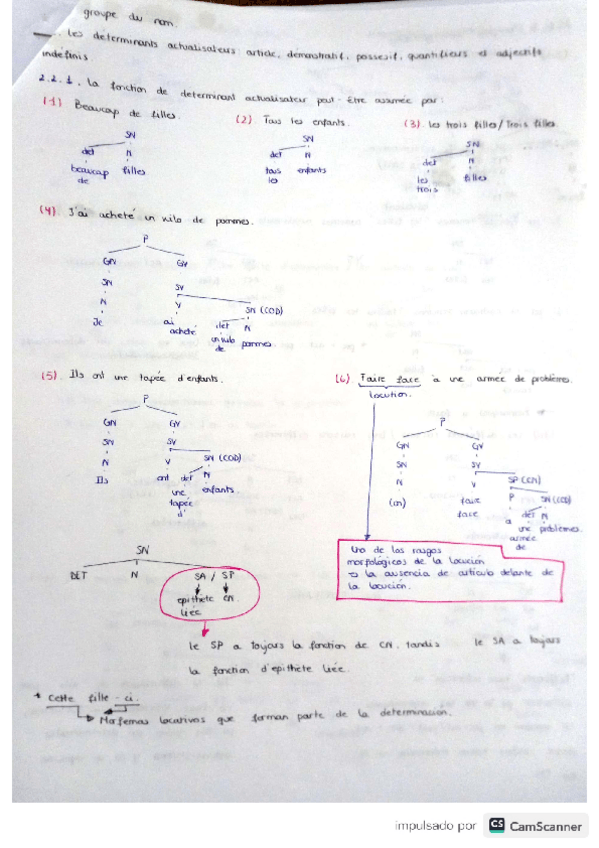 groupe du nom.
Les déterminants actualisateurs article, démonstratif, possesif, quantifieurs et adjectifs
indéfinis.
2.2.1. La fonction de determinant actualisateur peut-être assumée par:
(1) Beaucop de filles. (2) Tous les enfants. (3) les trois filles/Trois filles.
SN SN SN
det N det N det N
beaucop filles tous enfants les filles
de les trois
(4) J'ai acheté un kilo de pommes.
P
GN GV
SN SV
N V SN (COD)
Je ai det N
acheté un kilo pommes
de
(5) Ils ont une tapée d'enfants. (6) Faire face à une armée de problèmes.
locution.
P P
GN GV GN GV
SN SV SN SV
N V SN (COD) N V SP (CN)
Ils ont det N (on) faire P SN (COD)
une enfants. face à det N
tapée une problèmes.
d' armée
de
SN
DET N SA / SP
epithete CN.
liée
Uno de los rasgos
morfológicos de la locución
es la ausencia de artículo delante de
la locución.
le SP a toujars la fonction de CN, tandis le SA a toujars
la fonction d'epithete liée.
* Cette fille-ci.
Morfemas locativos que forman parte de la determinacion.
impulsado por CS CamScanner